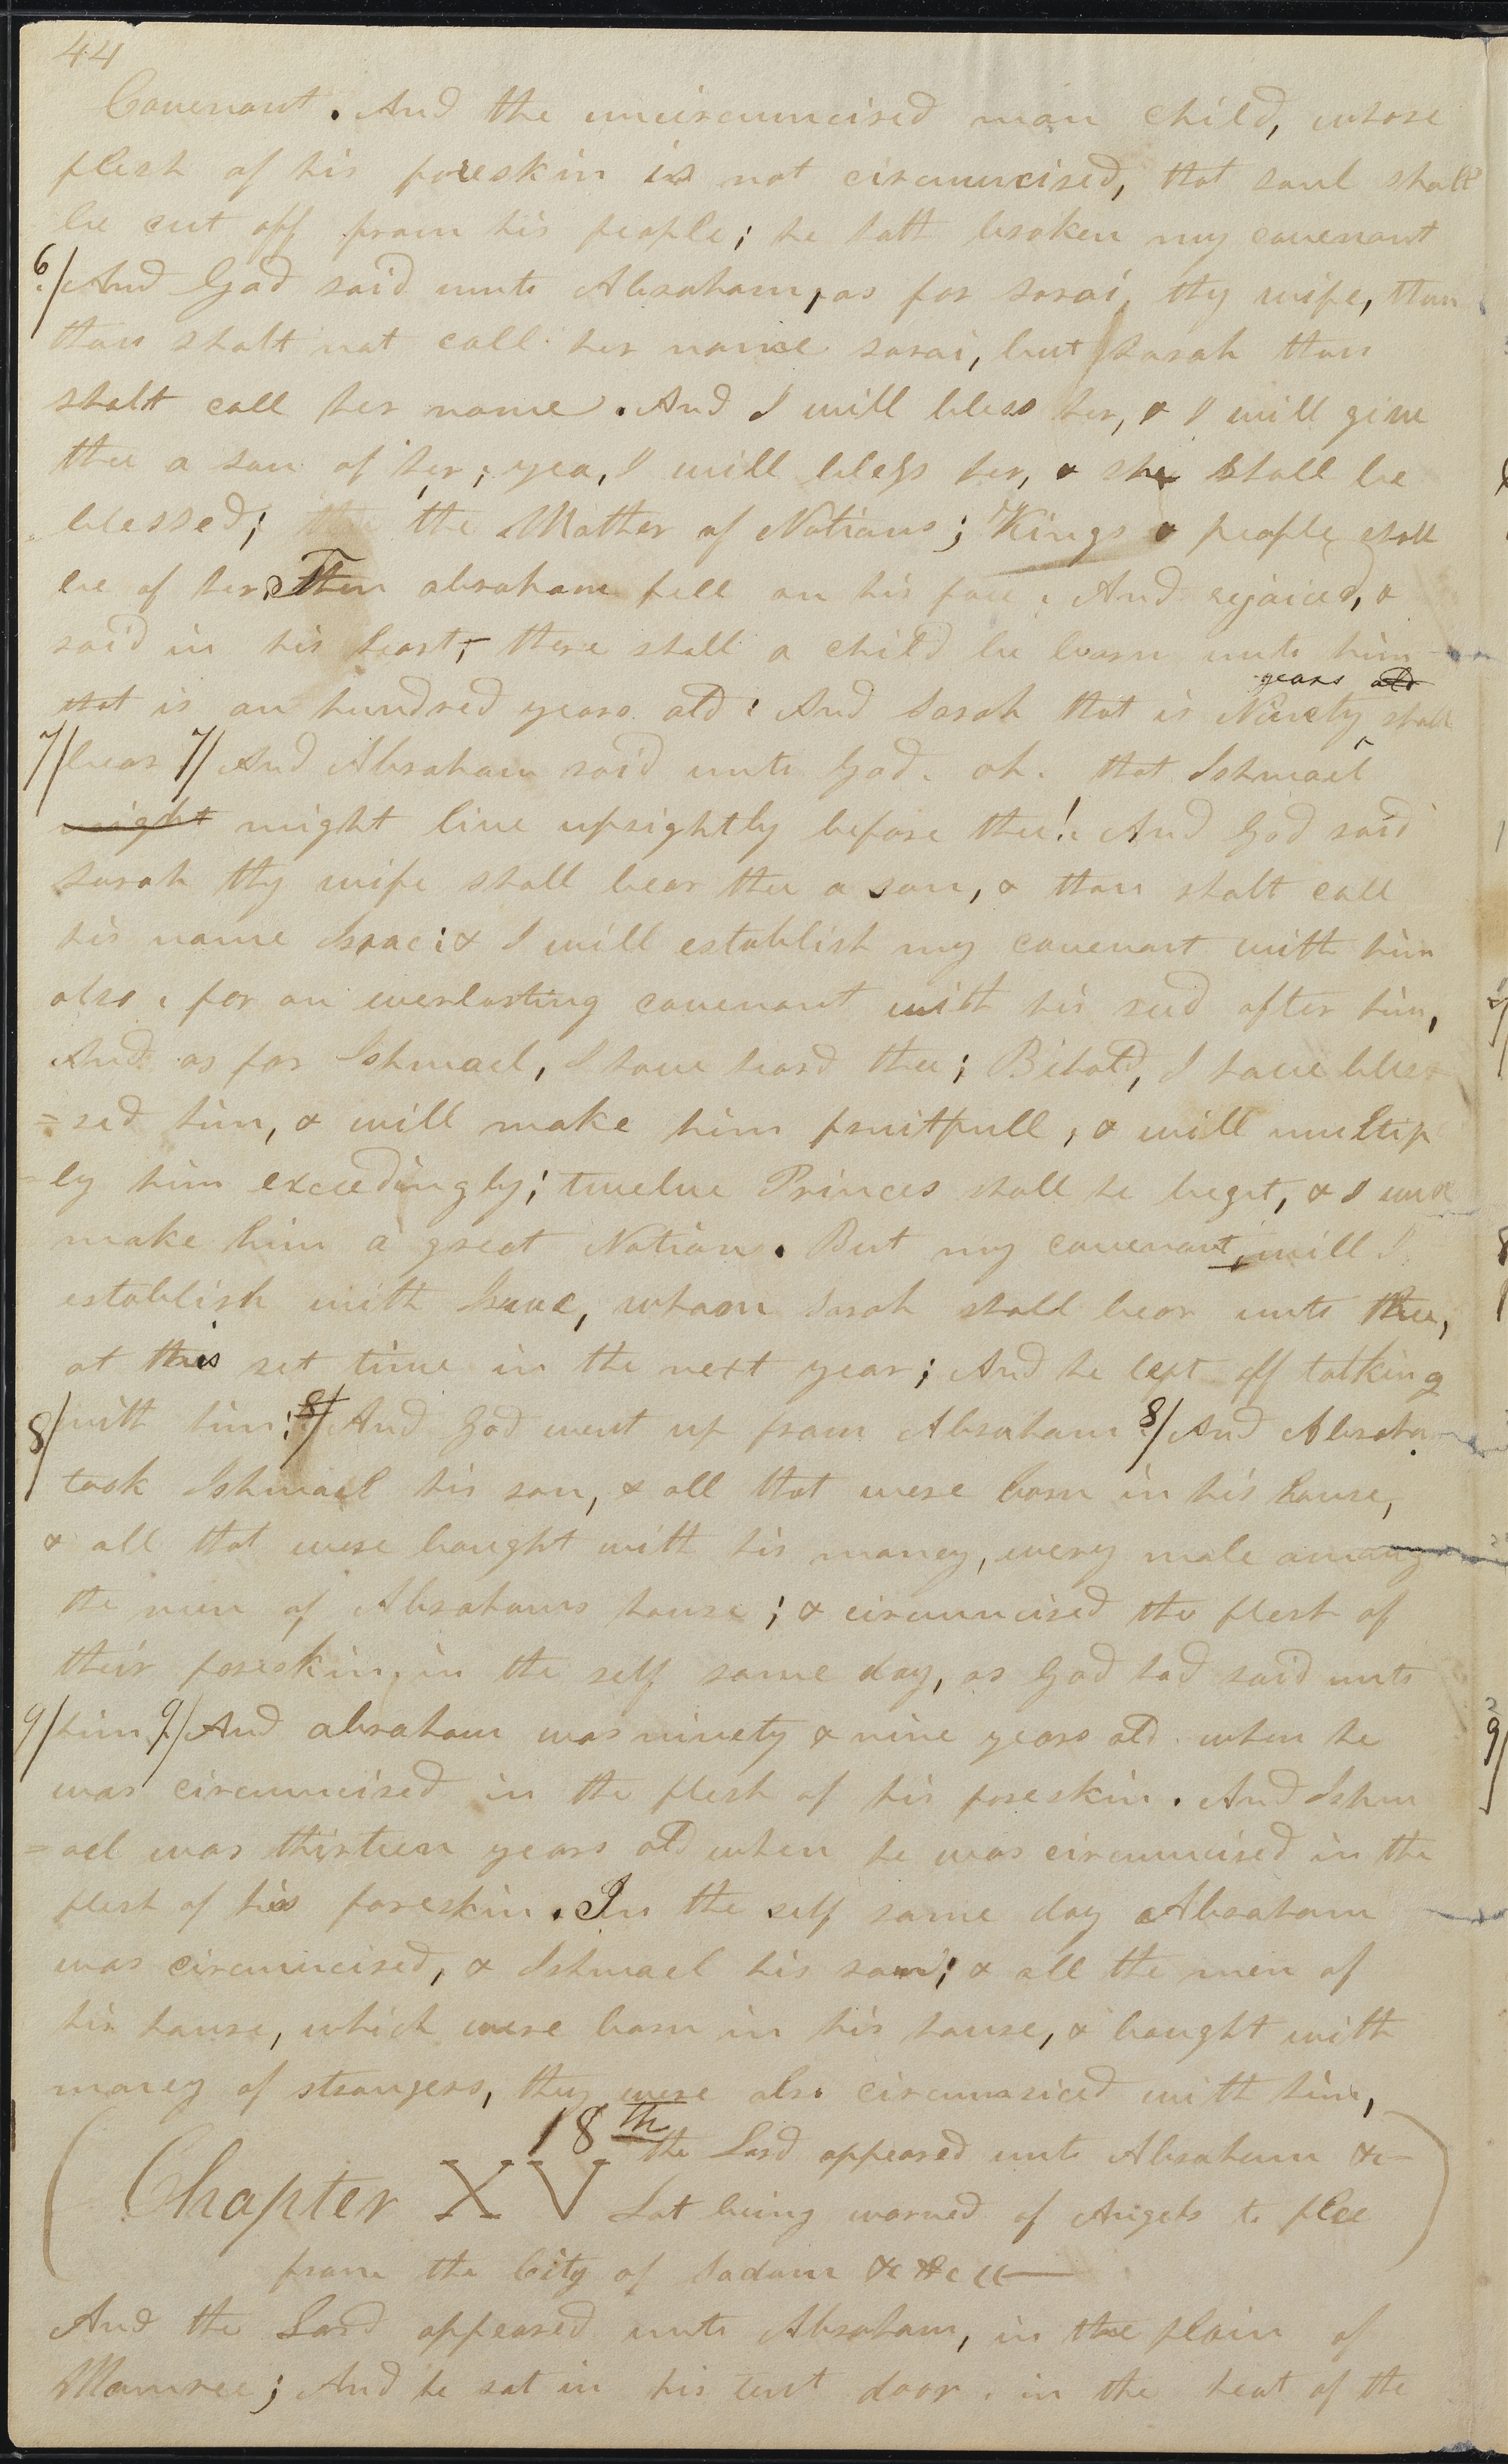 44
Covenant. And the uncircumcised man child, whose
flesh of his foreskin is not circumcised, that soul shall
be cut off from his people; he hath broken my covenant
6/ And God said unto Abraham, as for sarai, thy wife, thou
thou shalt not call her name sarai, but Sarah thou
shalt call her name. And I will bless her, & I will give
thee a son of her; yea, I will bless her, & she shall be
blessed; the Mother of Nations; Kings & people shall
be of her. Then abraham fell on his face. And rejoiced, &
said in his heart, there shall a child be born unto him
that is an hundred years old. And Sarah that is Ninety years old shall
7/ bear 7/ And Abraham said unto God. oh. that Ishmael
might might live uprightly before thee!. And God said
sarah thy wife shall bear thee a son, & thou shalt call
his name Isaac: & I will establish my covenant with him
also. for an everlasting covenant with his seed after him,
And as for Ishmael, I have heard thee; Behold, I have bles
=sed him, & will make him fruitfull, & will multip
-ly him exceedingly; twelve Princes shall he beget, & I will
make him a great Nation. But my covenant, will I
establish with Isaac, whom Sarah shall bear unto thee,
at this set time in the next year; And he left off talking
8/ with him; 8/ And God went up from Abraham 8/ And Abraham
took Ishmael his son, & all that were born in his house,
& all that were bought with his money, every male among
the men of Abrahams house; & circumcised the flesh of
their foreskin, in the self same day, as God had said unto
9/ him 9/ And abraham was ninety & nine years old when he
was circumcised in the flesh of his foreskin. And Ishm
=ael was thirteen years old when he was circumcised in the
flesh of his foreskin. In the self same day Abraham
was circumcised, & Ishmael his son; & all the men of
his house, which were born in his house, & bought with
money of strangers, they were also circumsiced with him,
18th the Lord appeared unto Abraham &c—
Chapter XV Lot being warned of Angels to flee
from the City of Sodom &c &c
And the Lord appeared unto Abraham, in the plain of
Mamree; And he sat in his tent door. in the heat of the